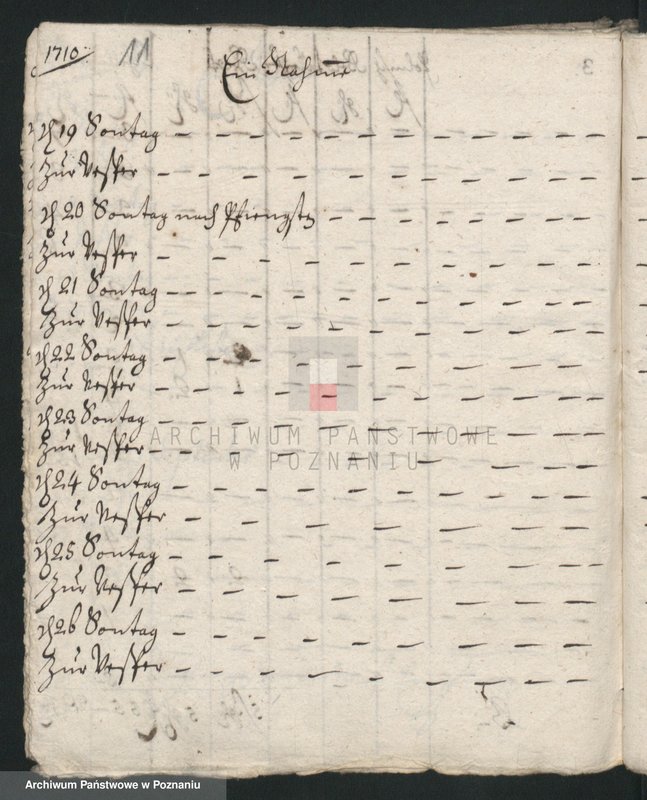 1710. 11
Ein Nahme
3
dh 19 Sontag
Zur Vesper
dh 20 Sontag nach Pfiengsten
Zur Vesper
dh 21 Sontag
Zur Vesper
dh 22 Sontag
Zur Vesper
dh 23 Sontag
Zur Vesper
dh 24 Sontag
Zur Vesper
dh 25 Sontag
Zur Vesper
dh 26 Sontag
Zur Vesper
ARCHIWUM PAŃSTWOWE
W POZNANIU
Archiwum Państwowe w Poznaniu